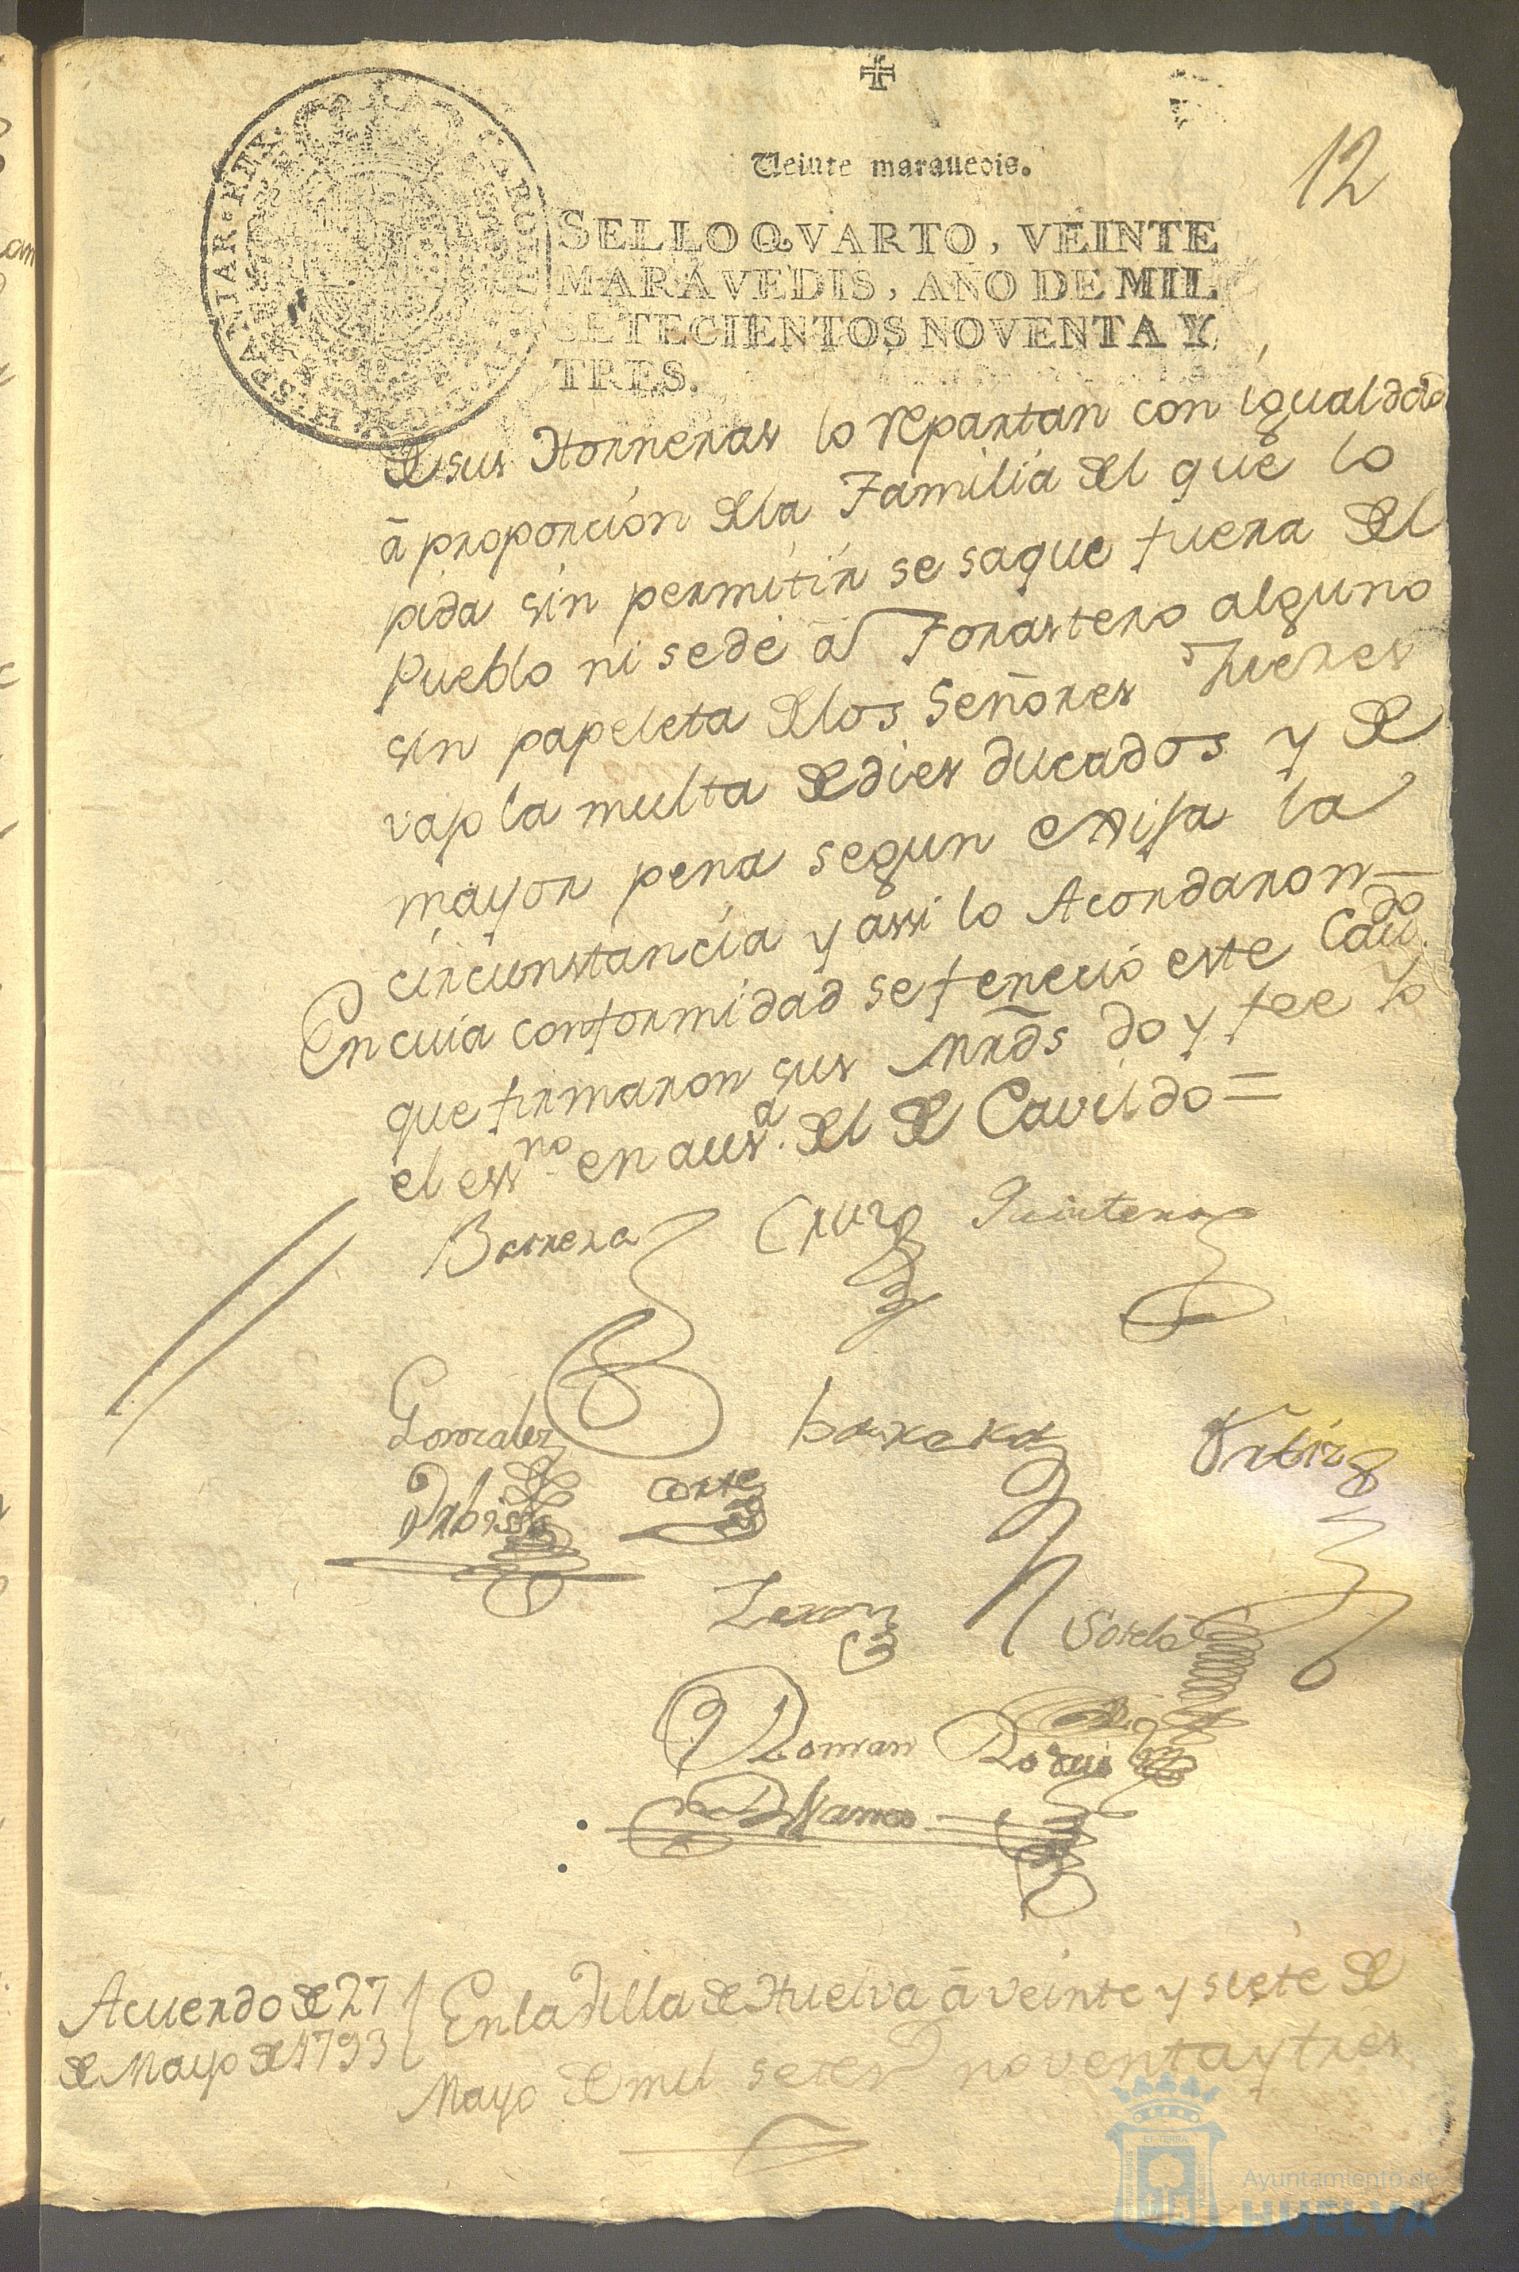 12
Veinte maravedis.
CAROLUS
HISPANIAR. REX.
SELLO QVARTO, VEINTE
MARAVEDIS, AÑO DE MIL
SETECIENTOS NOVENTA Y
TRES.
de sus Horneras lo repartan con igualdad
â proporcion dela Familia del que lo
pida sin permitir se saque fuera del
Pueblo ni sedé â Forastero alguno
sin papeleta delos Señores Jueces
vajo la multa de dies ducados y de
mayor pena segun exija la
circunstancia y assi lo Acordaron—
En cuia conformidad se fenecio este Cavdo.
que firmaron sus Mrds doy fee Yo
el essno en ausa. del de Cavildo=
Barrera Cruz Quintero
Gonzalez barrera Ortiz
Corte
Zeron Sotelo
Roman
Acuerdo de 27
de Mayo de 1793
En la Villa de Huelva â veinte y siete de
Mayo de mil setezs noventa y tres
Ayuntamiento de
HUELVA